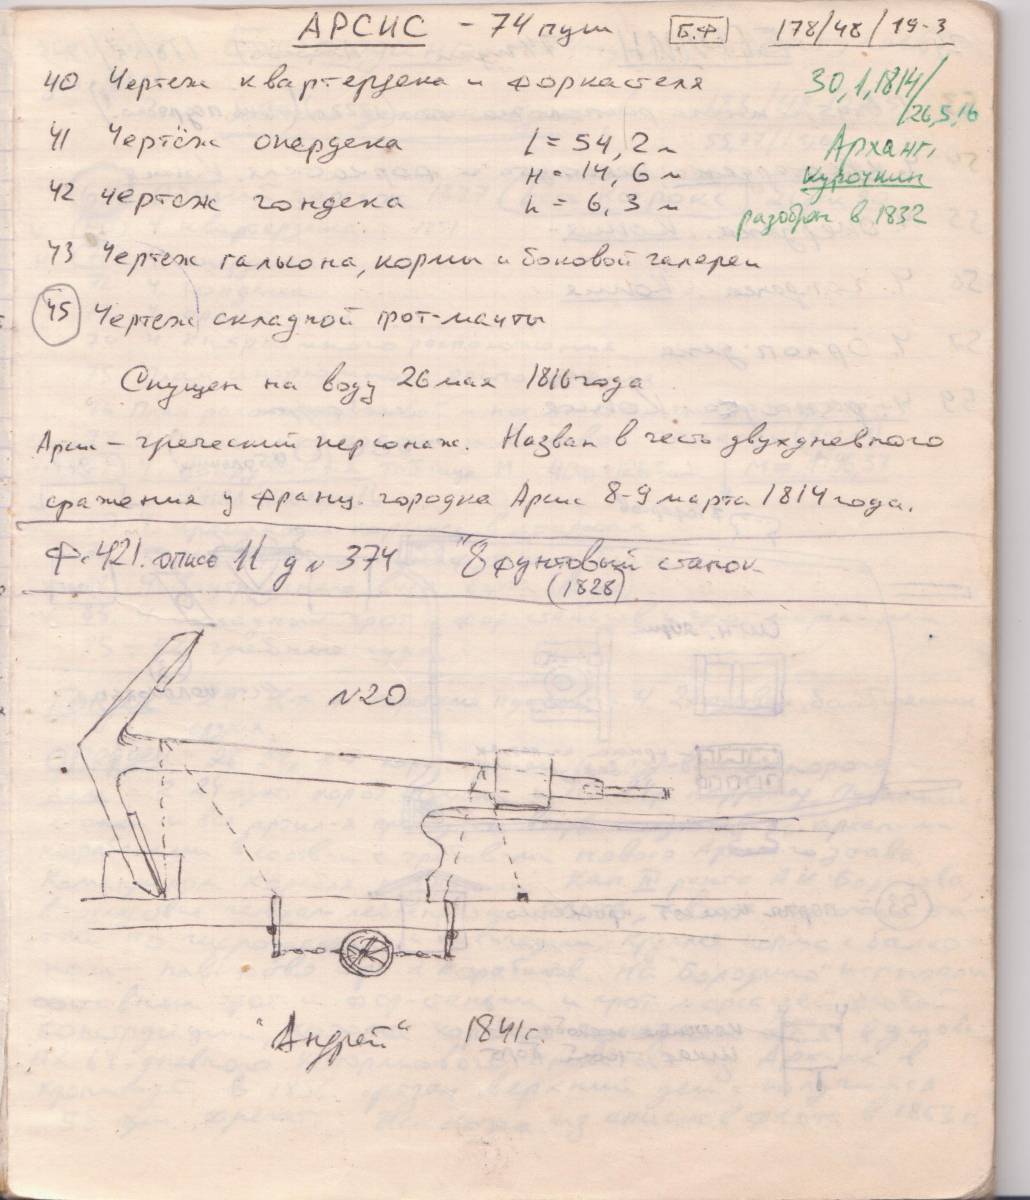 АРСИС - 74 пуш Б.Ф. 178/48/19-3
40 Чертеж квартердека и форкастеля 30,1,1814/
/26,5,16
41 Чертёж опердека l = 54,2 м Арханг.
42 чертеж гондека H = 14,6 м Курочкин
h = 6,3 м разобран в 1832
43 Чертеж гальюна, кормы и боковой галереи
45 Чертеж складной грот-мачты
Спущен на воду 26 мая 1816 года
Арсис - греческий персонаж. Назван в честь двухдневного
сражения у франц. городка Арсис 8-9 марта 1814 года.
Ф. 421. опись 11 д № 374 "8 фунтовый станок
(1828)
№20
"Андрей" 1841 г.